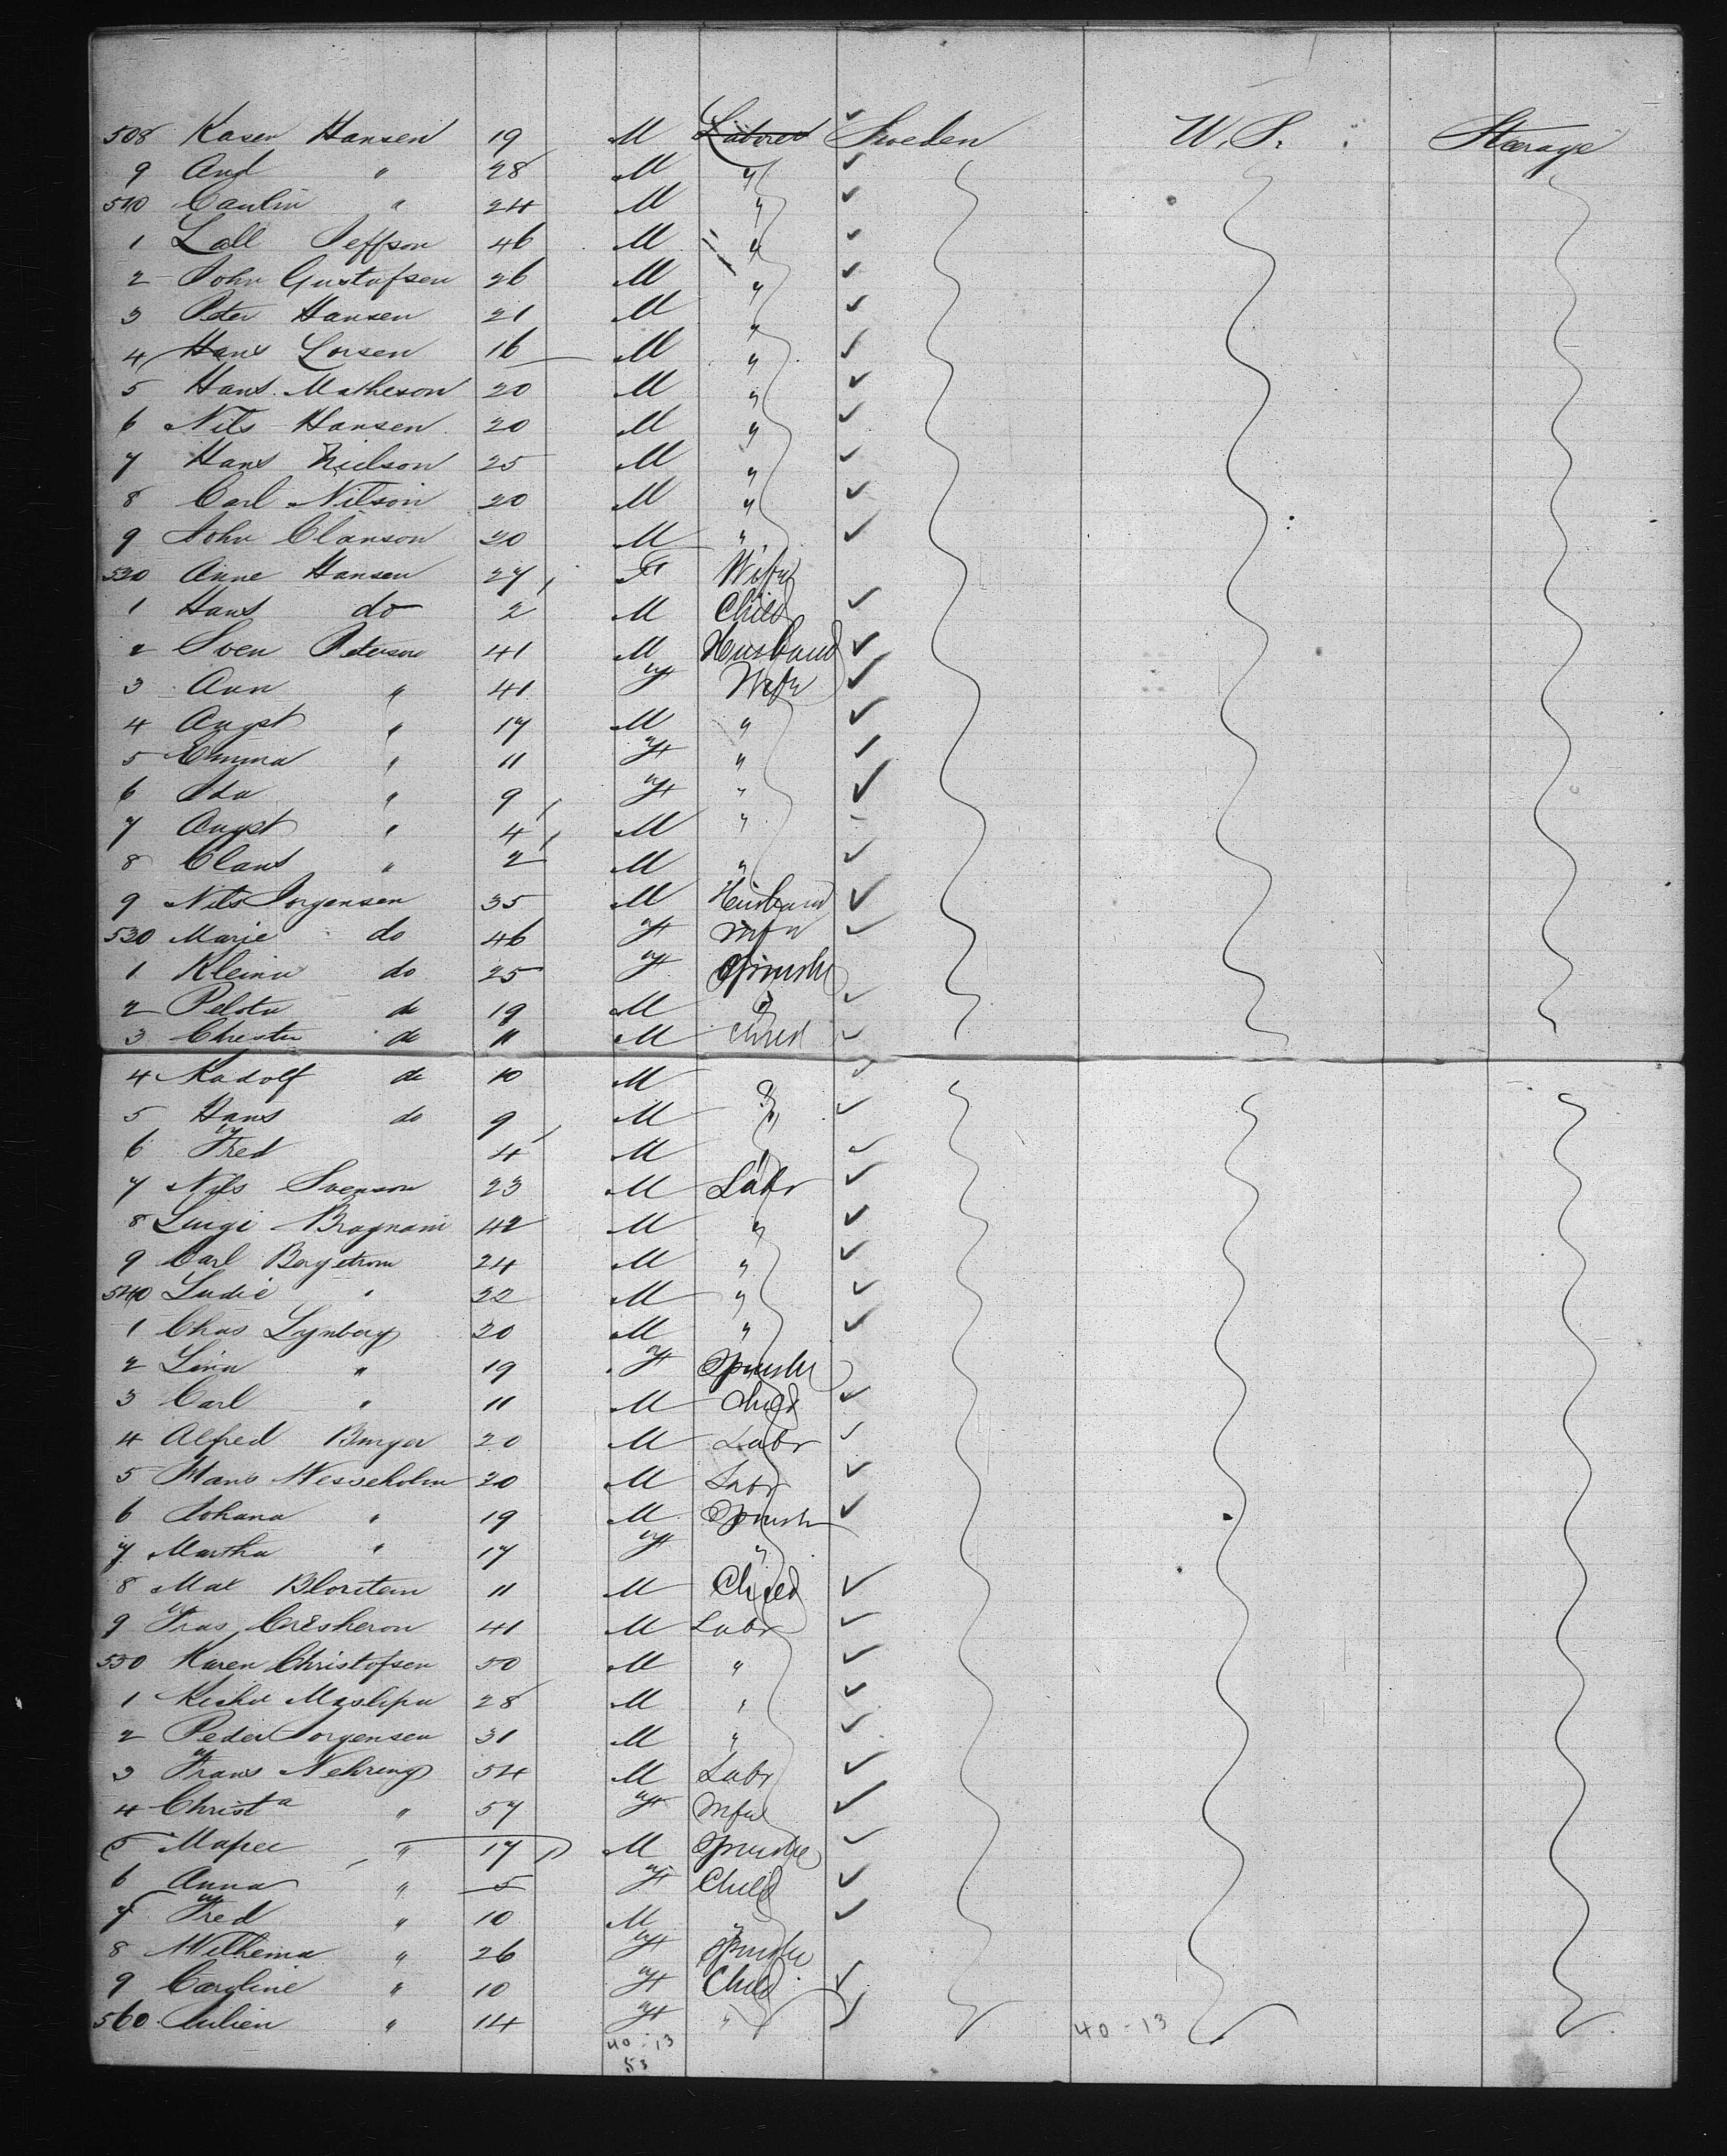 508 Kasen Hansen 19 M Laborer Sweden U.S. Steerage
9 And " 28 M "
510 Caulin " 24 M "
1 Lall Jeffson 46 M "
2 John Gustafsen 26 M "
3 Peter Hansen 21 M "
4 Hans Lorsen 16 M "
5 Hans Matheson 20 M "
6 Nils Hansen 20 M "
7 Hans Nielson 25 M "
8 Carl Nilson 20 M "
9 John Clanson 20 M "
520 Anne Hansen 27 F Wife
1 Hans do 2 M Child
2 Sven Peterson 41 M Husband
3 Ann " 41 F Wife
4 Augst " 17 M "
5 Emma " 11 F "
6 Ida " 9 F "
7 Augst " 4 M "
8 Claus " 2 M "
9 Nils Jorgensen 35 M Husband
530 Marie do 46 F Wife
1 Kleina do 25 F Spinster
2 Pelota do 19 M "
3 Christn do 11 M Child
4 Radolf do 10 M "
5 Hans do 9 M "
6 Fred 4 M "
7 Nils Svenson 23 M Labr
8 Luigi Bragnani 42 M "
9 Carl Bergstrom 24 M "
540 Ludie " 22 M "
1 Chas Lynberg 20 M "
2 Lina " 19 F Spinster
3 Carl " 11 M Child
4 Alfred Burger 20 M Labr
5 Hans Wesseholm 20 M Labr
6 Johana " 19 M Spinstr
7 Martha " 17 F "
8 Max Bloritem 11 M Child
9 Fras Cresheron 41 M Labr
550 Karen Christofsen 50 M "
1 28 M "
2 Peder Jorgensen 31 M "
3 Frans Nehring 54 M Labr
4 Christa " 57 F Wife
5 " 17 M Spinster
6 Anna " 5 F Child
7 Fred " 10 M "
8 Wilhema " 26 F Spinster
9 Caroline " 10 F Child
560 Julien " 14 F "
40-13 40-13
53